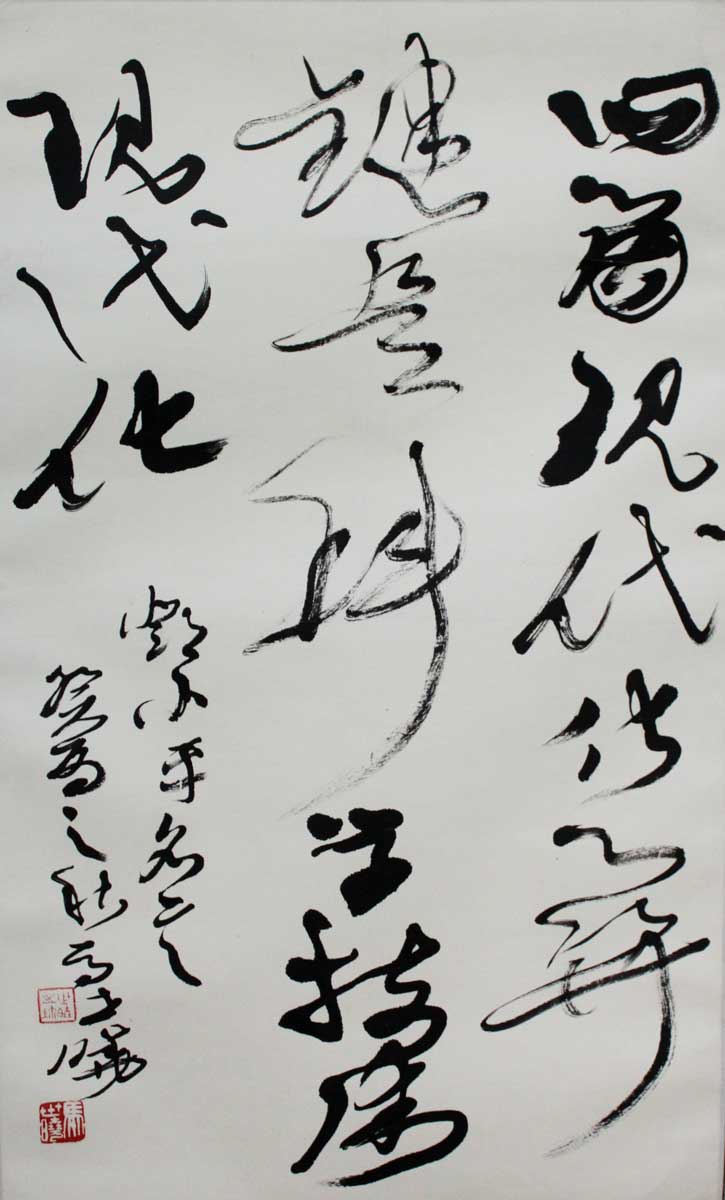 四箇現代化關
鍵是科學技術
現代化
鄧小平名言
癸酉之秋馬世曉